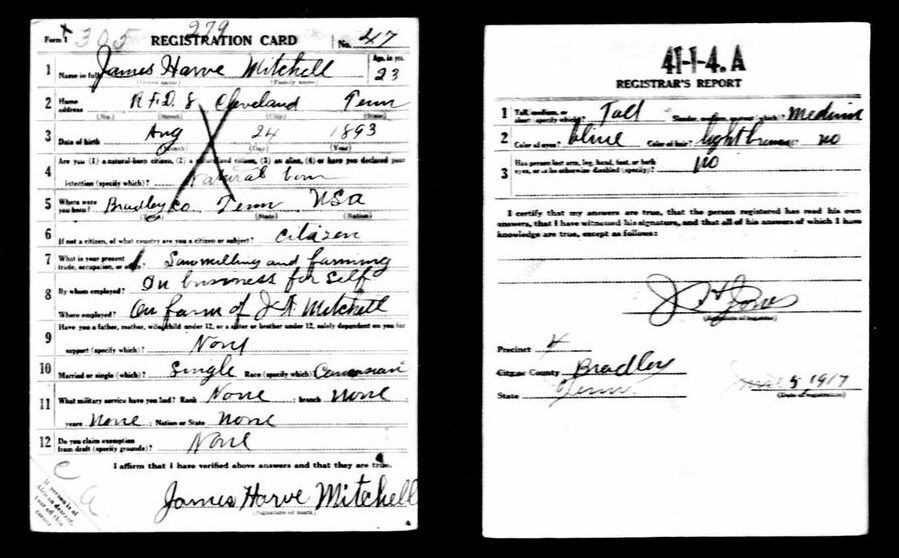 Form 1
305
279
REGISTRATION CARD
No. 47
1 Name in full James Harve Mitchell Age, in yrs. 23
(Given name) (Family name)
2 Home address R.F.D. 8 Cleveland Tenn
(No.) (Street) (City) (State)
3 Date of birth Aug 24 1893
(Month) (Day) (Year)
4 Are you (1) a natural-born citizen, (2) a naturalized citizen, (3) an alien, (4) or have you declared your
intention (specify which)? Natural born
5 Where were you born? Bradley Co Tenn USA
(Town) (State) (Nation)
6 If not a citizen, of what country are you a citizen or subject? Citizen
7 What is your present trade, occupation, or office? Sawmilling and farming
8 By whom employed? In business for self
Where employed? On farm of J Mitchell
9 Have you a father, mother, wife, child under 12, or a sister or brother under 12, solely dependent on you for
support (specify which)? None
10 Married or single (which)? Single Race (specify which)? Caucasian
11 What military service have you had? Rank None ; branch none
years None ; Nation or State None
12 Do you claim exemption from draft (specify grounds)? None
I affirm that I have verified above answers and that they are true.
James Harve Mitchell
(Signature or mark)
If person is of African descent, tear off this corner
41-1-4. A
REGISTRAR'S REPORT
1 Tall, medium, or short (specify which)? Tall Slender, medium, or stout (which)? medium
2 Color of eyes? blue Color of hair? light brown no
3 Has person lost arm, leg, hand, foot, or both eyes, or is he otherwise disabled (specify)? no
I certify that my answers are true, that the person registered has read his own
answers, that I have witnessed his signature, and that all of his answers of which I
have knowledge are true, except as follows:
Jones
(Signature of registrar)
Precinct 4
City or County Bradley
State Tenn.
5, 1917
(Date of registration)